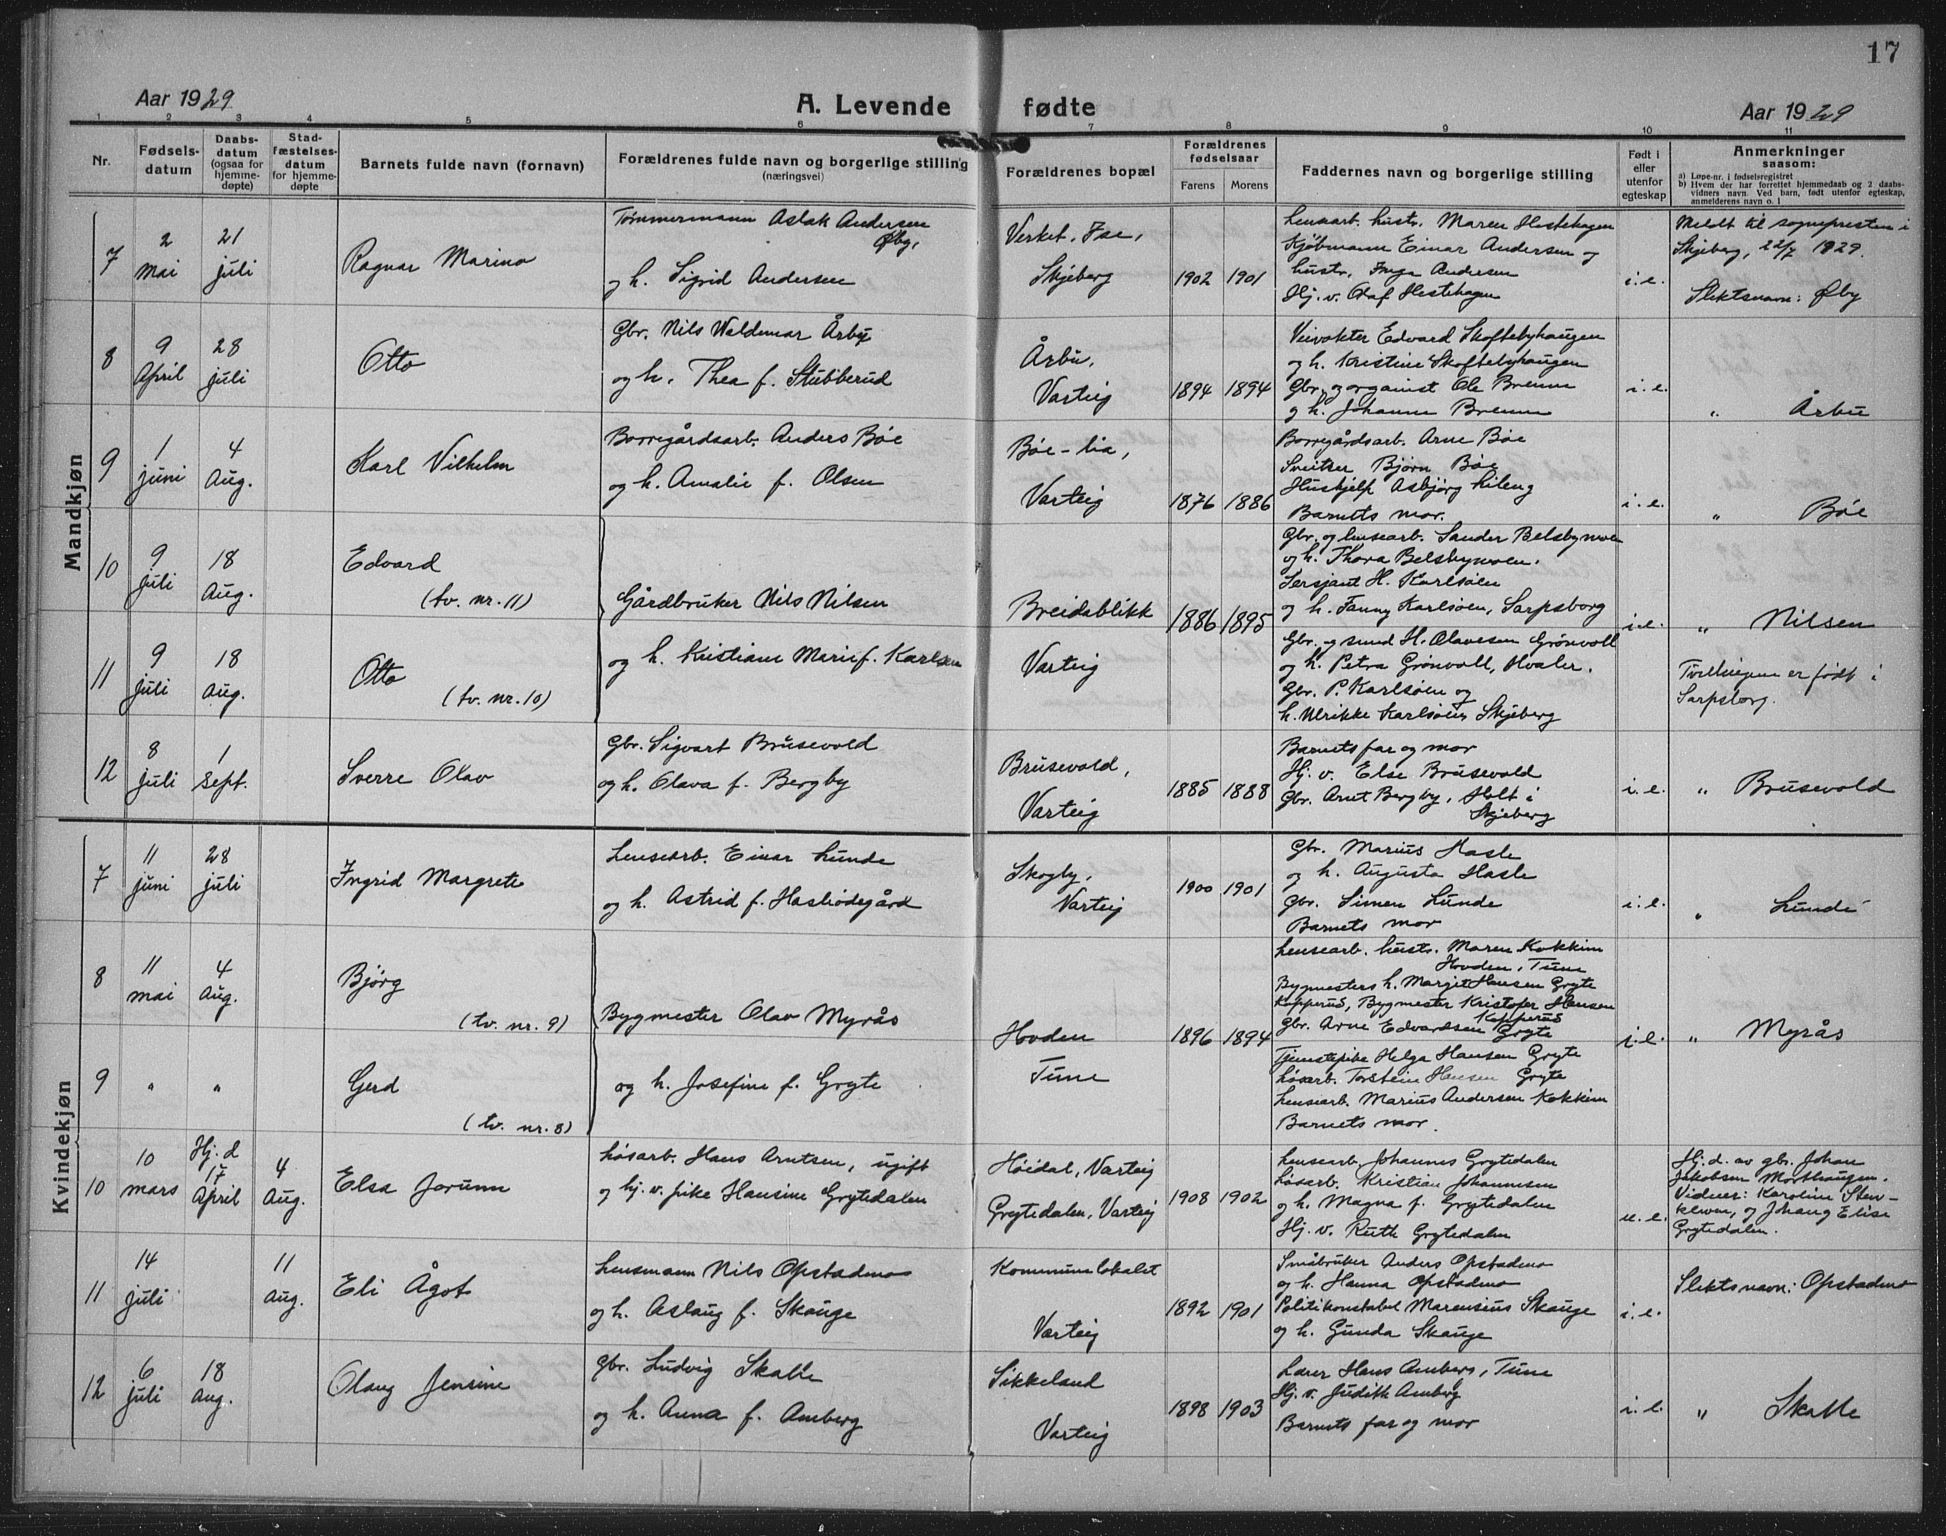 17
Aar 1929
A. Levende fødte
Aar 1929
1 2 3 4 5 6 7 8 9 10 11
Nr.
Fødsels-
datum
Daabs-
datum
(ogsaa for
hjemme-
døpte)
Stad-
fæstelses-
datum
for hjemme-
døpte
Barnets fulde navn (fornavn)
Forældrenes fulde navn og borgerlige stilling
(næringsvei)
Forældrenes bopæl
Forældrenes
fødselsaar
Farens
Morens
Faddernes navn og borgerlige stilling
Født i
eller
utenfor
egteskap
Anmerkninger
saasom:
a) Løpe-nr. i fødselsregistret
b) Hvem der har forrettet hjemmedaab og 2 daabs-
vidners navn. Ved barn, født utenfor egteskap,
anmelderens navn o. l.
Mandkjøn
7
2
mai
21
juli
Ragnar Marino
Tømmermann Aslak Andersen
Øby,
og h. Sigrid Andersen
Verket, Ise,
Skjeberg
1902 1901
Lensearb. hustr. Maren Hestehagen
Kjøbmann Einar Andersen og
hustr. Inga Andersen
Hj. v. Olaf Hestehagen
i. e.
Meldt til sognepresten i
Skjeberg, 22/7 1929.
Slektsnavn: Øby
8
9
April
28
juli
Otto
Gbr. Nils Waldemar Årbu
og h. Thea f. Stubberud
Årbu,
Varteig
1894 1894
Veivokter Edvard Skoftebyhaugen
og h. Kristine Skoftebyhaugen
Gbr. og organist Ole Brenne
og h. Johanne Brenne
i. e.
" Årbu
9
1
juni
4
Aug.
Karl Vilhelm
Borregårdsarb. Anders Bøe
og h. Amalie f. Olsen
Bøe-lia,
Varteig
1876 1886
Borregårdsarb. Arne Bøe
Sveitser Bjørn Bøe
Hushjelp Asbjørg Lileng
Barnets mor.
i. e.
" Bøe
10
9
juli
18
Aug.
Edvard
(tv. nr. 11)
Gårdbruker Nils Nilsen
Breidablikk
1886 1895
Gbr. og lensearb. Sander Belsbymoen
og h. Thora Belsbymoen.
Sersjant H. Karlsøen
og h. Fanny Karlsøen, Sarpsborg
i. e.
" Nilsen
11
9
juli
18
Aug.
Otto
(tv. nr. 10)
og h. Kristiane Marie f. Karlsen
Varteig
Gbr. og smed H. Olavesen Grønvoll
og h. Petra Grønvoll, Hvaler.
Gbr. P. Karlsøen og
h. Ulrikke Karlsøen, Skjeberg
Tvillingene er født i
Sarpsborg.
12
8
juli
1
Sept.
Sverre Olav
Gbr. Sigvart Brusevold
og h. Olava f. Bergby
Brusevold,
Varteig
1885 1888
Barnets far og mor
Hj. v. Else Brusevold
Gbr. Arnt Bergby, Holt i
Skjeberg
i. e.
" Brusevold
Kvindekjøn
7
11
juni
28
juli
Ingrid Margrete
Lensearb. Einar Lunde
og h. Astrid f. Hasleødegård
Skogby,
Varteig
1900 1901
Gbr. Marius Hasle
og h. Augusta Hasle
Gbr. Simen Lunde
Barnets mor
i. e.
" Lunde
8
11
mai
4
Aug.
Bjørg
(tv. nr. 9)
Bygmester Olav Myrås
Hovden
1896 1894
Lensearb. hustr. Maren Kokkim
Hovden, Tune
Bygmesters h. Margit Hansen Gryte
Kopperud, Bygmester Kristofer Hansen
Kopperud
Gbr. Arne Edvardsen Gryte
i. e.
" Myrås
9
" "
Gerd
(tv. nr. 8)
og h. Josefine f. Gryte
Tune
Tjenstepike Helga Hansen Gryte
Løsarb. Torstein Hansen Gryte
Lensearb. Marius Andersen Kokkim
Barnets mor.
10
10
mars
Hj. d
17
April
4
Aug.
Elsa Jorunn
Løsarb. Hans Arntsen, ugift
og hj. v. pike Hansine Grytedalen
Høidal, Varteig
Grytedalen, Varteig
1908 1902
Lensearb. Johannes Grytedalen
Løsarb. Kristian Johannesen
og h. Magna f. Grytedalen
Hj. v. Ruth Grytedalen
u. e.
Hj. d. av gbr. Johan
Jakobsen Morthaugen.
Vidner: Karoline Sten-
kleven, og Johang Elise
Grytedalen.
11
14
juli
11
Aug.
Eli Ågot
Lensmann Nils Opstadmo
og h. Aslaug f. Skauge
Kommunelokalet
Varteig
1892 1901
Småbruker Anders Opstadmo
og h. Hanna Opstadmo
Politikonstabel Marensius Skauge
og h. Gunda Skauge
i. e.
Slektsnavn: Opstadmo
12
6
juli
18
Aug.
Olaug Jensine
Gbr. Ludvig Skalle
og h. Anna f. Amberg
Sikkeland
Varteig
1898 1903
Lærer Hans Amberg, Tune
Hj. v. Judith Amberg
Barnets far og mor
i. e.
" Skalle